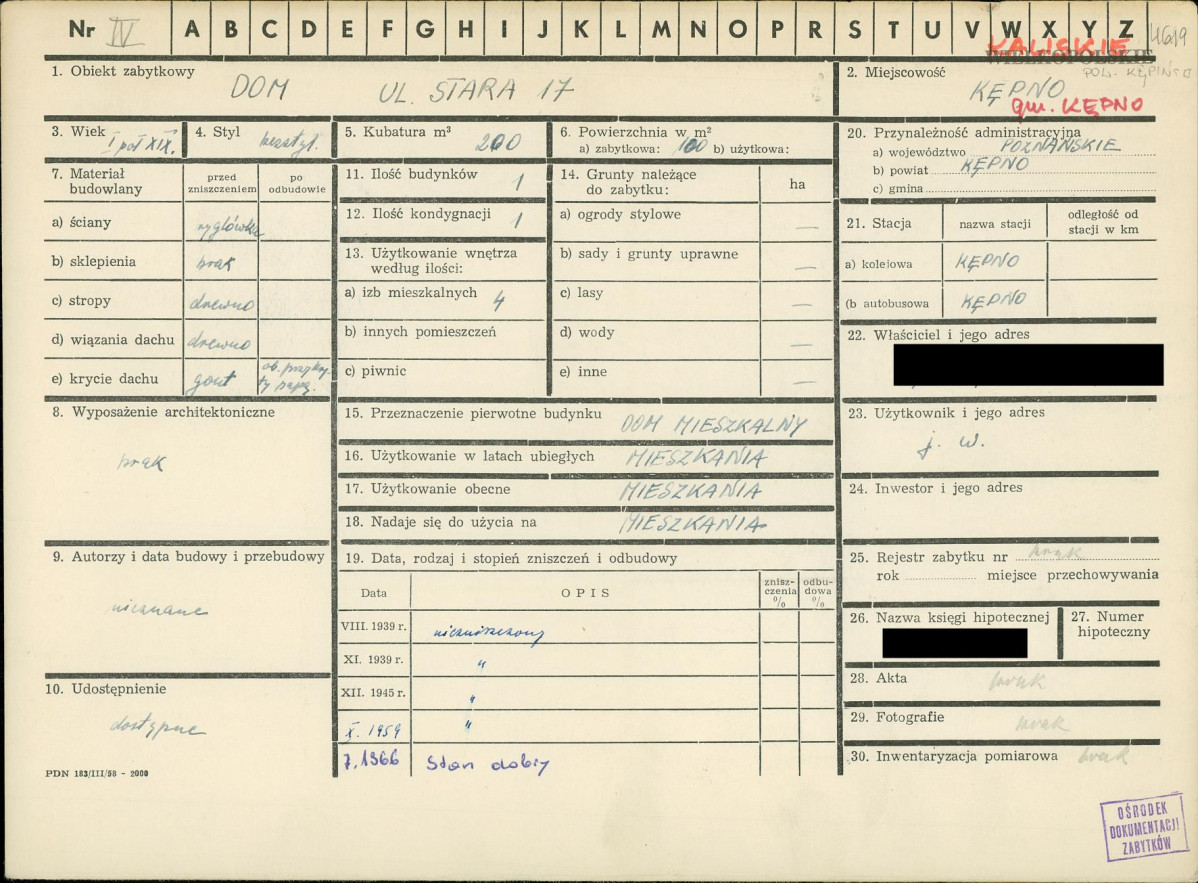 Nr IV A B C D E F G H I J K L M N O P R S T U V W X Y Z 4619
KALISKIE
WIELKOPOLSKIE
POW. KĘPIŃSKI
1. Obiekt zabytkowy
DOM UL. STARA 17
2. Miejscowość
KĘPNO
gm. KĘPNO
3. Wiek I poł XIX.
4. Styl bezstyl.
5. Kubatura m³
200
6. Powierzchnia w m²
a) zabytkowa: 100 b) użytkowa:
7. Materiał budowlany
przed zniszczeniem
po odbudowie
a) ściany ryglówka
b) sklepienia brak
c) stropy drewno
d) wiązania dachu drewno
e) krycie dachu gont ob. przykryty papą.
8. Wyposażenie architektoniczne
brak
9. Autorzy i data budowy i przebudowy
nieznane
10. Udostępnienie
dostępne
PDN 183/III/58 - 2000
11. Ilość budynków 1
12. Ilość kondygnacji 1
13. Użytkowanie wnętrza
według ilości:
a) izb mieszkalnych 4
b) innych pomieszczeń
c) piwnic
14. Grunty należące
do zabytku:
ha
a) ogrody stylowe —
b) sady i grunty uprawne —
c) lasy —
d) wody —
e) inne —
15. Przeznaczenie pierwotne budynku DOM MIESZKALNY
16. Użytkowanie w latach ubiegłych MIESZKANIA
17. Użytkowanie obecne MIESZKANIA
18. Nadaje się do użycia na MIESZKANIA
19. Data, rodzaj i stopień zniszczeń i odbudowy
Data
OPIS
znisz-
czenia
%
odbu-
dowa
%
VIII. 1939 r. niezniszczony
XI. 1939 r. "
XII. 1945 r. "
X. 1959 "
7.1966 Stan dobry
20. Przynależność administracyjna
a) województwo POZNAŃSKIE
b) powiat KĘPNO
c) gmina
21. Stacja
nazwa stacji
odległość od
stacji w km
a) kolejowa KĘPNO
(b autobusowa KĘPNO
22. Właściciel i jego adres
23. Użytkownik i jego adres
j. w.
24. Inwestor i jego adres
25. Rejestr zabytku nr brak
rok miejsce przechowywania
26. Nazwa księgi hipotecznej
27. Numer
hipoteczny
28. Akta brak
29. Fotografie brak
30. Inwentaryzacja pomiarowa brak
OŚRODEK
DOKUMENTACJI
ZABYTKÓW